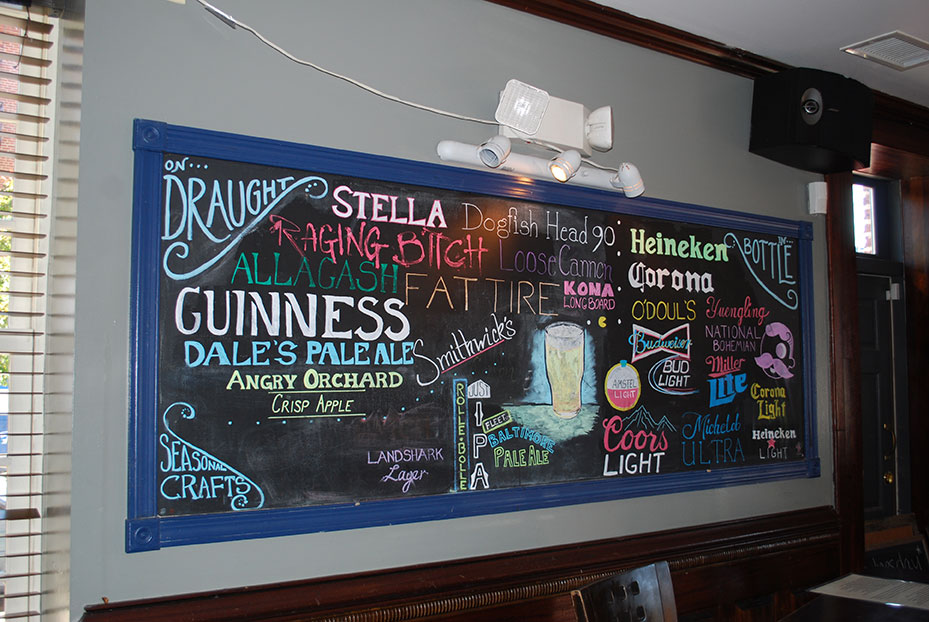 ON...
DRAUGHT
STELLA
RAGING BITCH
ALLAGASH
GUINNESS
DALE'S PALE ALE
ANGRY ORCHARD
CRISP APPLE
Dogfish Head 90
Loose Cannon
FAT TIRE
KONA
LONGBOARD
Smithwick's
SEASONAL
CRAFTS
LANDSHARK
Lager
ROLLE·BOLLE
JUST
IPA
FLEET
BALTIMORE
PALE ALE
IN...
BOTTLE
Heineken
Corona
O'DOUL'S
Budweiser
BUD
LIGHT
AMSTEL
LIGHT
Coors
LIGHT
Yuengling
NATIONAL
BOHEMIAN
Miller
LITE
Michelob
ULTRA
Corona
Light
Heineken
LIGHT